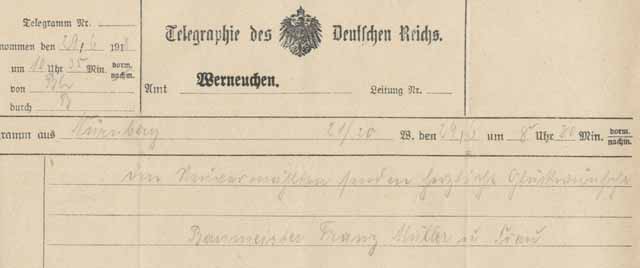 Telegramm Nr.
nommen den 29./6 1918
Telegraphie des Deutschen Reichs.
um 10 Uhr 35 Min. vorm. nachm.
von
durch
Amt Werneuchen. Leitung Nr.
gramm aus Nürnberg 21/20 W. den 29./6 um 8 Uhr 20 Min. vorm. nachm.
den Neuvermählten senden herzliche Glückwünsche
Baumeister Franz Müller u Frau